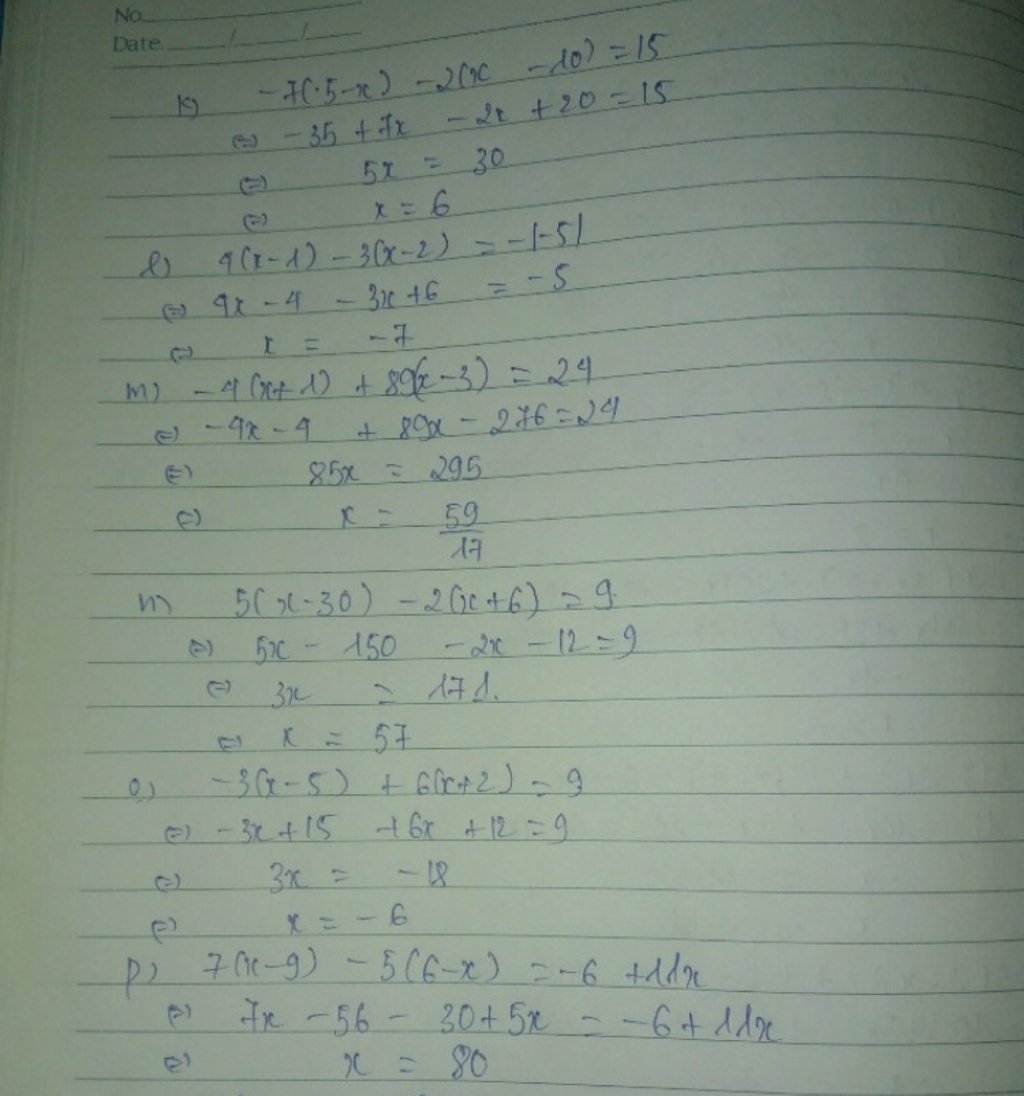 No.
Date / /
k) -7(5-x) -2(x -10) = 15
⇔ -35 + 7x - 2x + 20 = 15
⇔ 5x = 30
⇔ x = 6
l) 4(x-1) - 3(x-2) = -|-5|
⇔ 4x - 4 - 3x + 6 = -5
⇔ x = -7
m) -4(x+1) + 89(x-3) = 24
⇔ -4x - 4 + 89x - 276 = 24
⇔ 85x = 295
⇔ x = 59/17
n) 5(x-30) - 2(x+6) = 9
⇔ 5x - 150 - 2x - 12 = 9
⇔ 3x = 171.
⇔ x = 57
o) -3(x-5) + 6(x+2) = 9
⇔ -3x + 15 + 6x + 12 = 9
⇔ 3x = -18
⇔ x = -6
p) 7(x-9) - 5(6-x) = -6 + 11x
⇔ 7x - 56 - 30 + 5x = -6 + 11x
⇔ x = 80